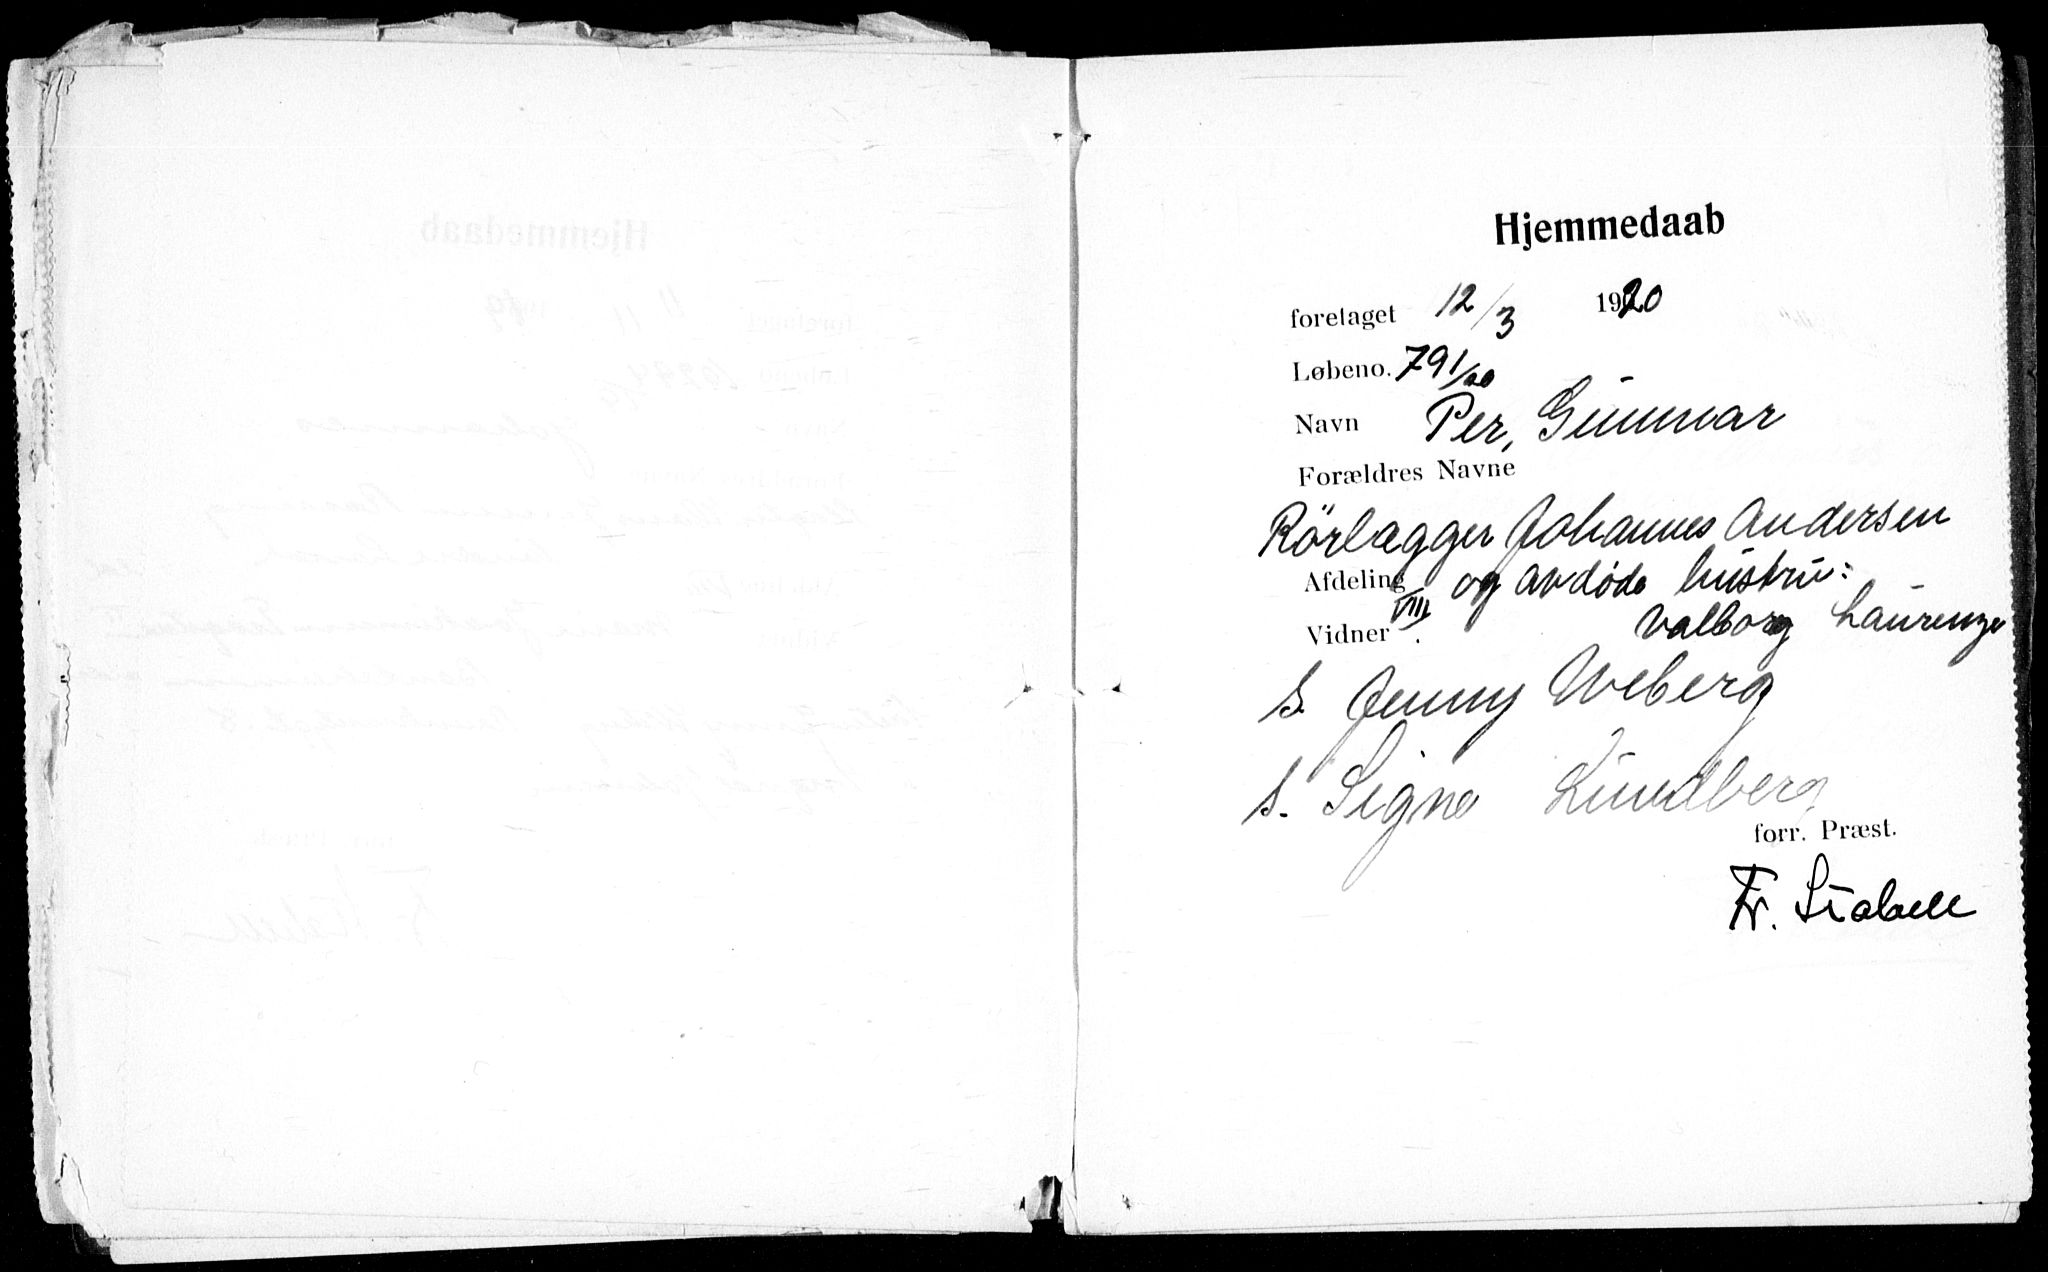 Hjemmedaab
foretaget 12/3 1920
Løbeno. 791/20
Navn Per, Gunnar
Forældres Navne
Rörlægger Johannes Andersen
Afdeling VIII og avdøde hustru:
Vidner . Valborg Laurenze
S. Jenny Weberg
S. Signe Lundberg
forr. Præst.
Fr. Stabell